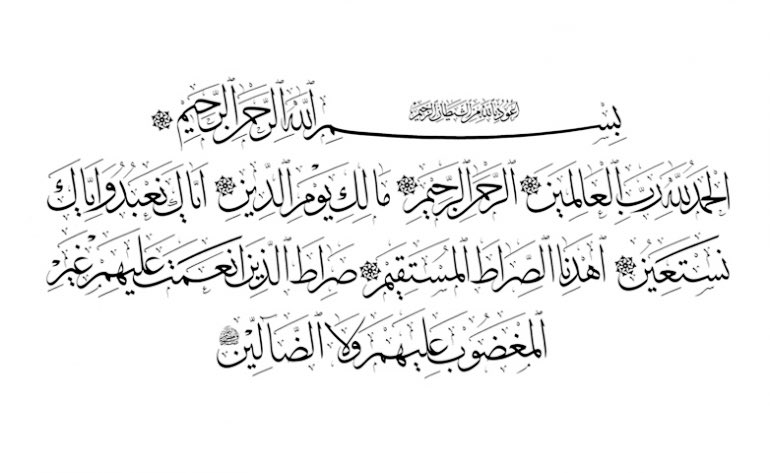 اعوذ بالله من الشيطان الرجيم
بسم الله الرحمن الرحيم
الحمد لله رب العالمين الرحمن الرحيم مالك يوم الدين اياك نعبد واياك
نستعين اهدنا الصراط المستقيم صراط الذين انعمت عليهم غير
المغضوب عليهم ولا الضالين